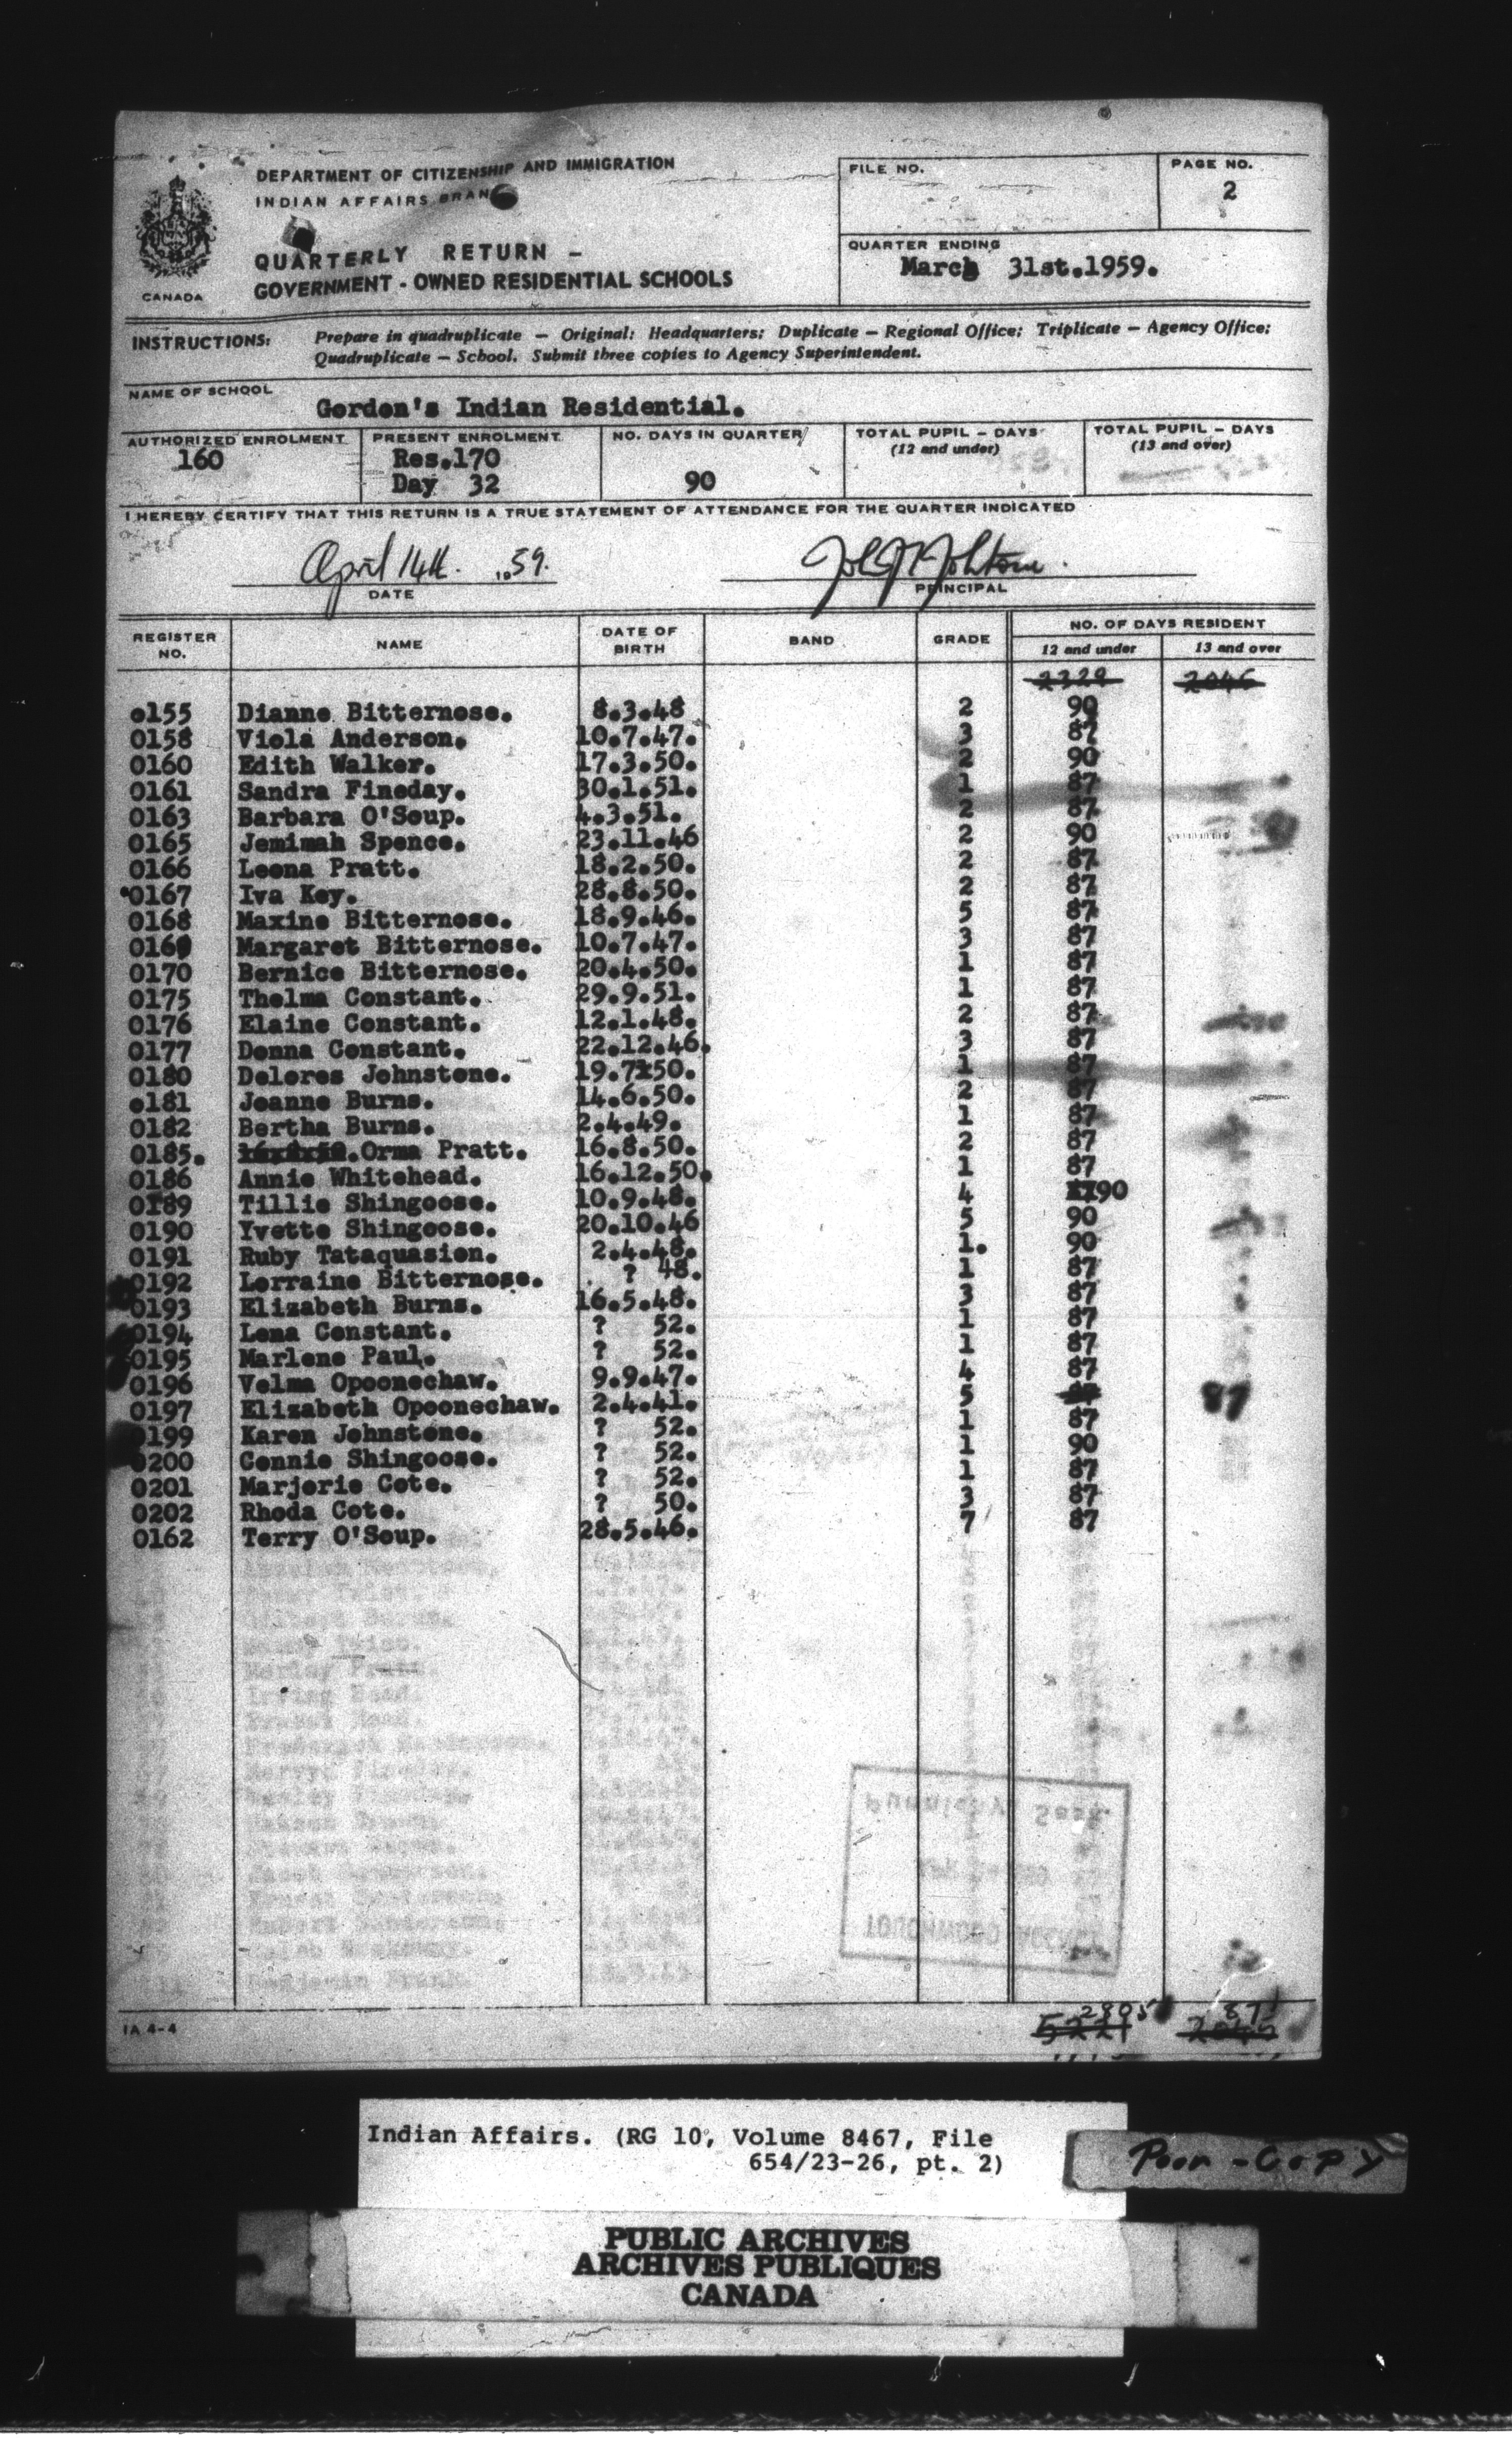 DEPARTMENT OF CITIZENSHIP AND IMMIGRATION
INDIAN AFFAIRS BRANCH
QUARTERLY RETURN –
GOVERNMENT - OWNED RESIDENTIAL SCHOOLS
CANADA
FILE NO.
PAGE NO.
2
QUARTER ENDING
March 31st.1959.
INSTRUCTIONS: Prepare in quadruplicate — Original: Headquarters; Duplicate — Regional Office; Triplicate — Agency Office;
Quadruplicate — School. Submit three copies to Agency Superintendent.
NAME OF SCHOOL
Gordon's Indian Residential.
AUTHORIZED ENROLMENT PRESENT ENROLMENT NO. DAYS IN QUARTER TOTAL PUPIL – DAYS (12 and under) TOTAL PUPIL – DAYS (13 and over)
160 Res.170 90
Day 32
I HEREBY CERTIFY THAT THIS RETURN IS A TRUE STATEMENT OF ATTENDANCE FOR THE QUARTER INDICATED
April 14th. 1959.
DATE PRINCIPAL
REGISTER NO. NAME DATE OF BIRTH BAND GRADE NO. OF DAYS RESIDENT
12 and under 13 and over
2329 2046
0155 Dianne Bitternose. 8.3.48 2 90
0158 Viola Anderson. 10.7.47. 3 87
0160 Edith Walker. 17.3.50. 2 90
0161 Sandra Fineday. 30.1.51. 1 87
0163 Barbara O'Soup. 4.3.51. 2 87
0165 Jemimah Spence. 23.11.46 2 90
0166 Leona Pratt. 18.2.50. 2 87
0167 Iva Key. 28.8.50. 2 87
0168 Maxine Bitternose. 18.9.46. 5 87
0169 Margaret Bitternose. 10.7.47. 3 87
0170 Bernice Bitternose. 20.4.50. 1 87
0175 Thelma Constant. 29.9.51. 1 87
0176 Elaine Constant. 12.1.48. 2 87
0177 Donna Constant. 22.12.46. 3 87
0180 Delores Johnstone. 19.7.50. 1 87
0181 Joanne Burns. 14.6.50. 2 87
0182 Bertha Burns. 2.4.49. 1 87
0185. Orma Pratt. 16.8.50. 2 87
0186 Annie Whitehead. 16.12.50. 1 87
0189 Tillie Shingoose. 10.9.48. 4 90
0190 Yvette Shingoose. 20.10.46 5 90
0191 Ruby Tataquasion. 2.4.48. 1. 90
0192 Lorraine Bitternose. ? 48. 1 87
0193 Elizabeth Burns. 16.5.48. 3 87
0194 Lena Constant. ? 52. 1 87
0195 Marlene Paul. ? 52. 1 87
0196 Velma Opoonechaw. 9.9.47. 4 87
0197 Elizabeth Opoonechaw. 2.4.41. 5 87
0199 Karen Johnstone. ? 52. 1 87
0200 Connie Shingoose. ? 52. 1 90
0201 Marjorie Cote. ? 52. 1 87
0202 Rhoda Cote. ? 50. 3 87
0162 Terry O'Soup. 28.5.46. 7 87
2805 87
5221
IA 4-4
Indian Affairs. (RG 10, Volume 8467, File
654/23-26, pt. 2)
Poor - Copy
PUBLIC ARCHIVES
ARCHIVES PUBLIQUES
CANADA